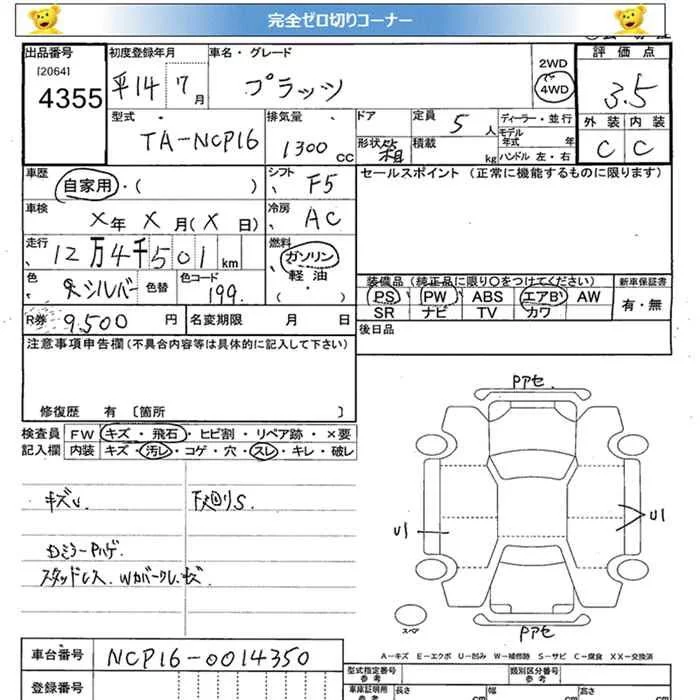 完全ゼロ切りコーナー
出品番号 初度登録年月 車名・グレード 評価点
[2064]
4355 平14 7月 プラッツ 2WD 4WD 3.5
型式 排気量 ドア 定員 ディーラー・並行 外装 内装
TA-NCP16 1300cc 形状 箱 5人 積載 kg モデル年式 年 ハンドル 左・右 C C
車歴 シフト セールスポイント (正常に機能するものに限ります)
自家用・( ) F5
車検 冷房
X年X月(X日) AC
走行 燃料
12万4千501km ガソリン
軽油
( ・ )
色 色替 色コード 装備品 (純正品に限り○をつけてください) 新車保証書
シルバー 199 PS PW ABS エアB AW 有・無
SR ナビ TV カワ
R券 9,500円 名変期限 月 日 後日品
注意事項申告欄(不具合内容等は具体的に記入して下さい)
修復歴 有 〔箇所 〕
検査員 FW キズ・飛石・ヒビ割・リペア跡・×要
記入欄 内装 キズ・汚レ・コゲ・穴・スレ・キレ・破レ
キズU 下廻りS.
DミラーPハゲ.
スタッドレス. Wカバークレ.キズ
Pアセ.
U1 U1
Pアセ
スペア
A-キズ E-エクボ U-凹み W-補修跡 S-サビ C-腐食 XX-交換済
車台番号 NCP16-0014350
型式指定番号 参考 類別区分番号 参考
登録番号 車庫証明用 参考 長さ cm 幅 cm 高さ cm